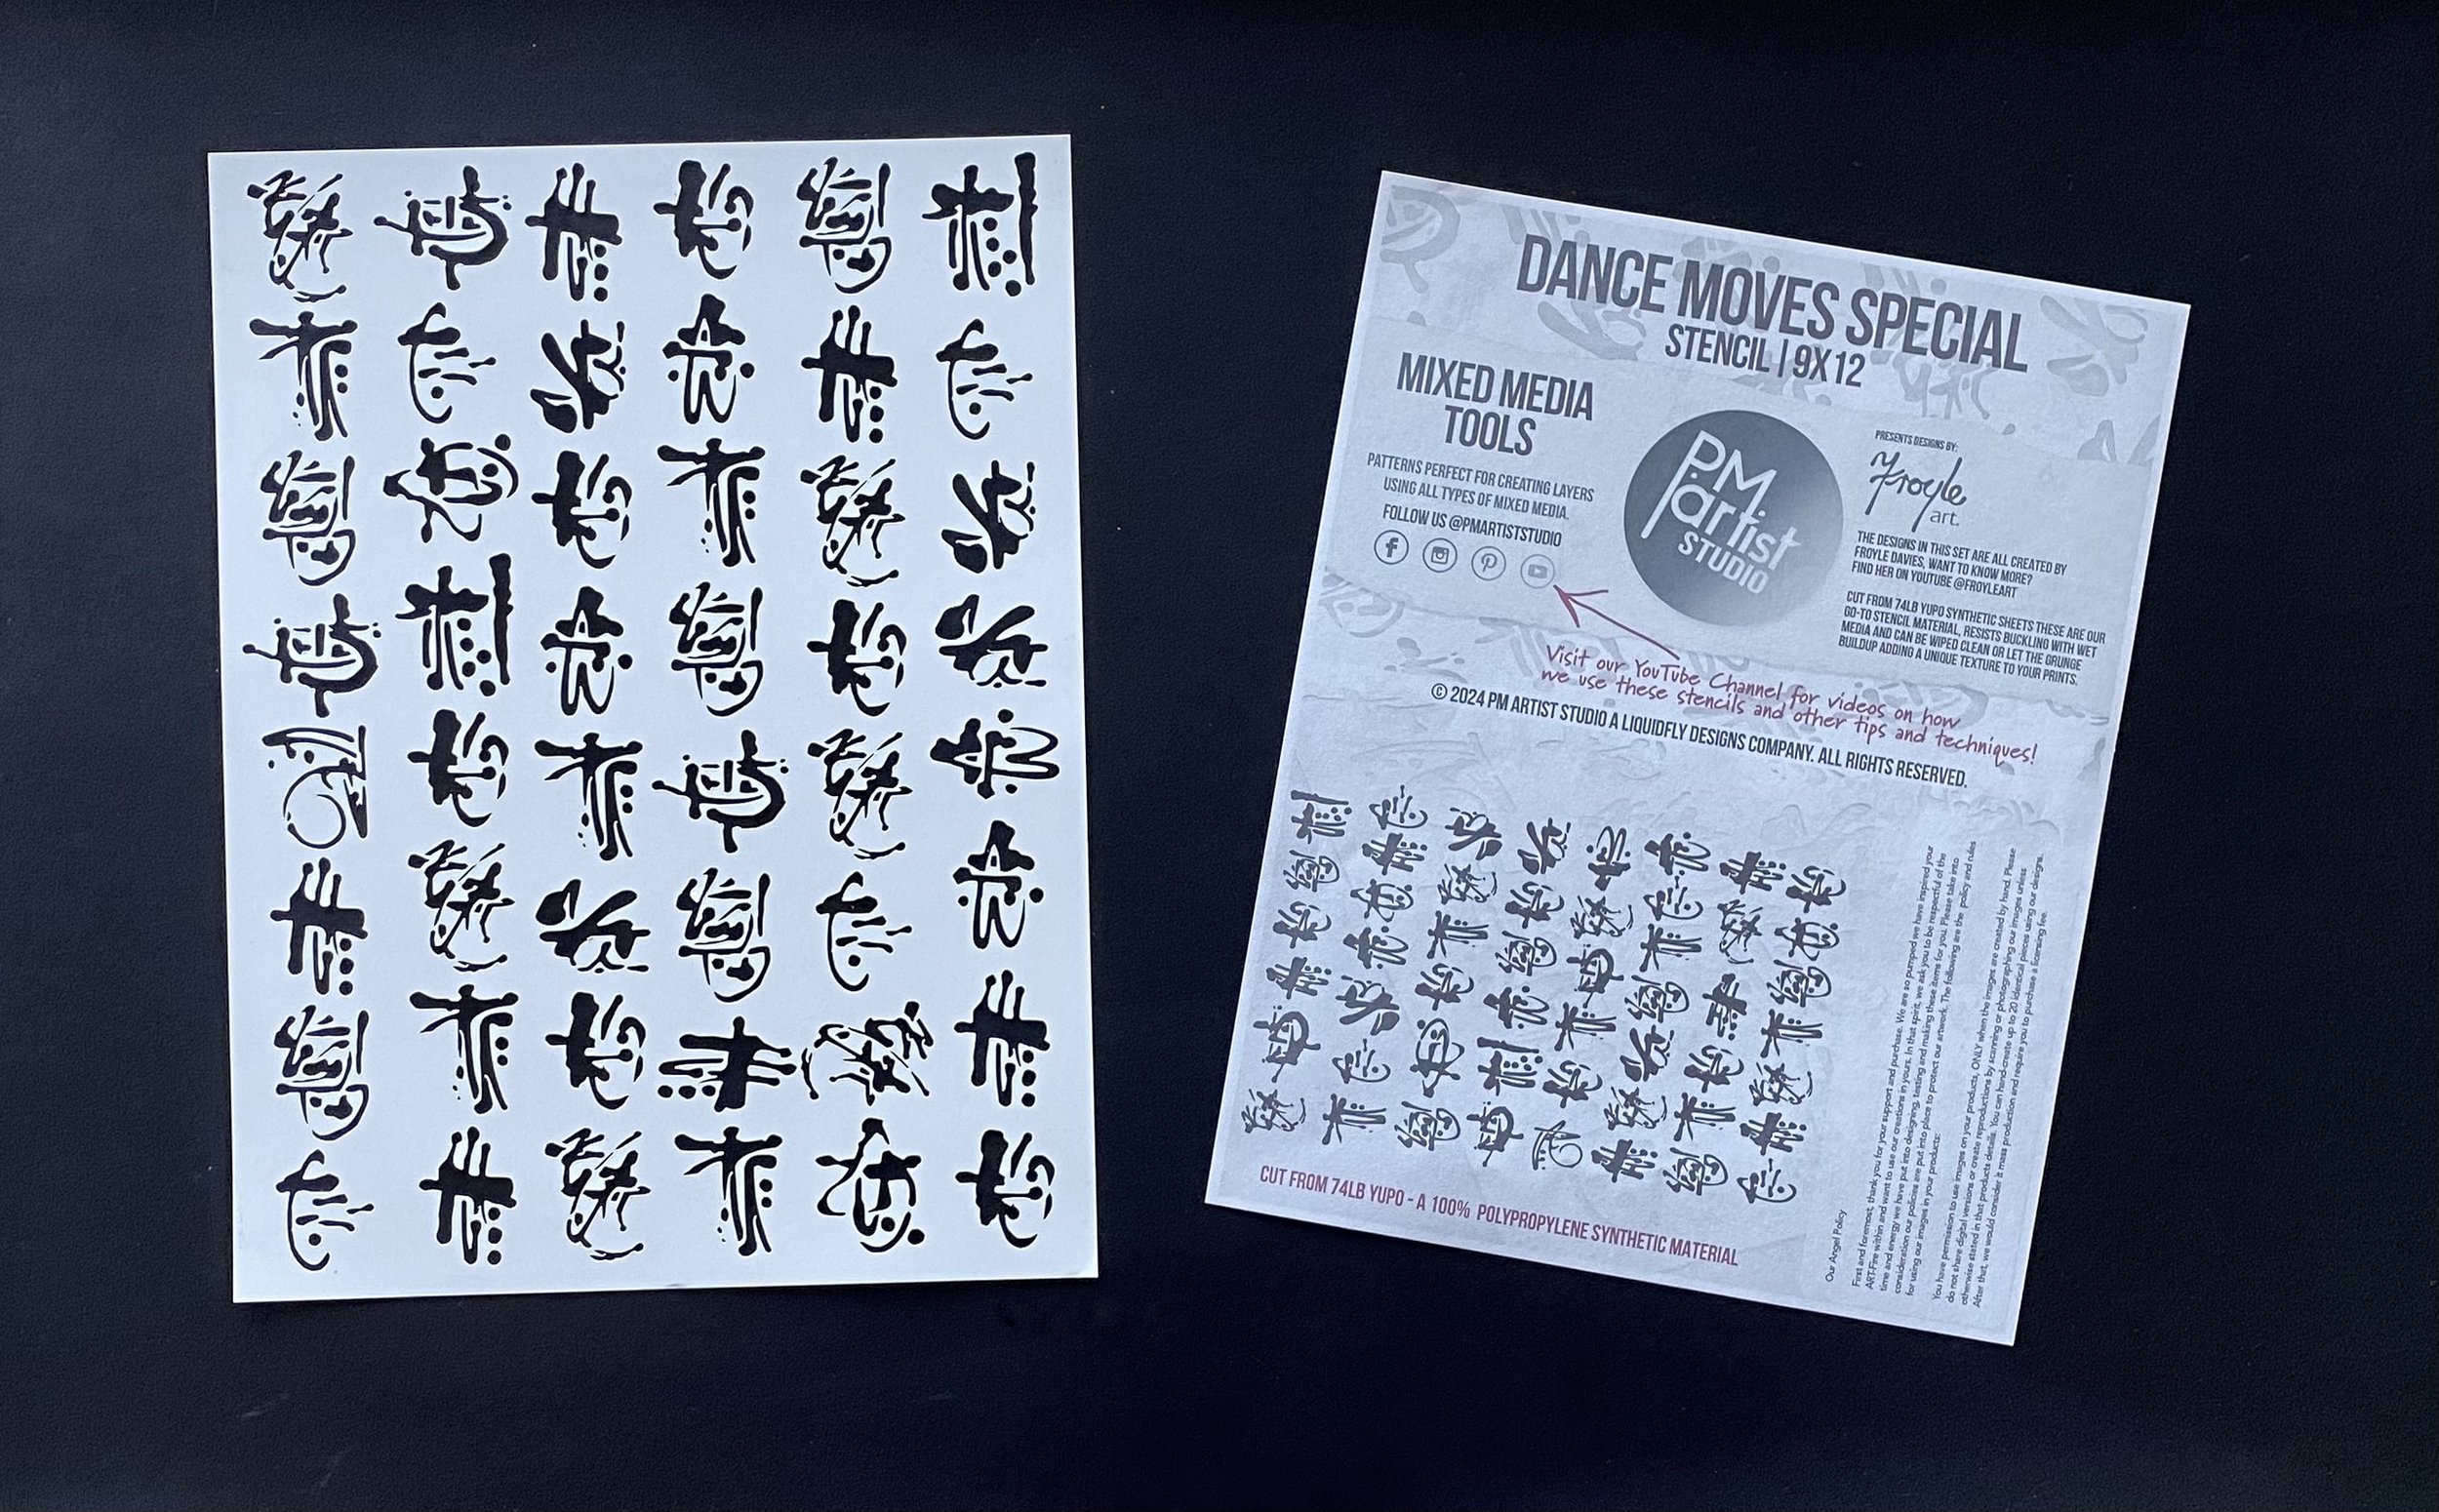 DANCE MOVES SPECIAL
STENCIL | 9X12
MIXED MEDIA
TOOLS
PATTERNS PERFECT FOR CREATING LAYERS
USING ALL TYPES OF MIXED MEDIA.
FOLLOW US @PMARTISTSTUDIO
PM
artist
STUDIO
PRESENTS DESIGNS BY:
Froyle
art.
THE DESIGNS IN THIS SET ARE ALL CREATED BY
FROYLE DAVIES, WANT TO KNOW MORE?
FIND HER ON YOUTUBE @FROYLEART
CUT FROM 74LB YUPO SYNTHETIC SHEETS THESE ARE OUR
GO-TO STENCIL MATERIAL, RESISTS BUCKLING WITH WET
MEDIA AND CAN BE WIPED CLEAN OR LET THE GRUNGE
BUILDUP ADDING A UNIQUE TEXTURE TO YOUR PRINTS.
Visit our YouTube Channel for videos on how
we use these stencils and other tips and techniques!
© 2024 PM ARTIST STUDIO A LIQUIDFLY DESIGNS COMPANY. ALL RIGHTS RESERVED.
CUT FROM 74LB YUPO - A 100% POLYPROPYLENE SYNTHETIC MATERIAL
Our Angel Policy
First and foremost, thank you for your support and purchase. We are so pumped we have inspired your
ART-Fire within and want to use our creations in yours. In that spirit, we ask you to be respectful of the
time and energy we have put into designing, testing and making these items for you. Please take into
consideration our policies are put into place to protect our artwork. The following are the policy and rules
for using our images in your products:
You have permission to use images on your products, ONLY when the images are created by hand. Please
do not share digital versions or create reproductions by scanning or photographing our images unless
otherwise stated in that products details. You can hand-create up to 20 identical pieces using our designs.
After that, we would consider it mass production and require you to purchase a licensing fee.